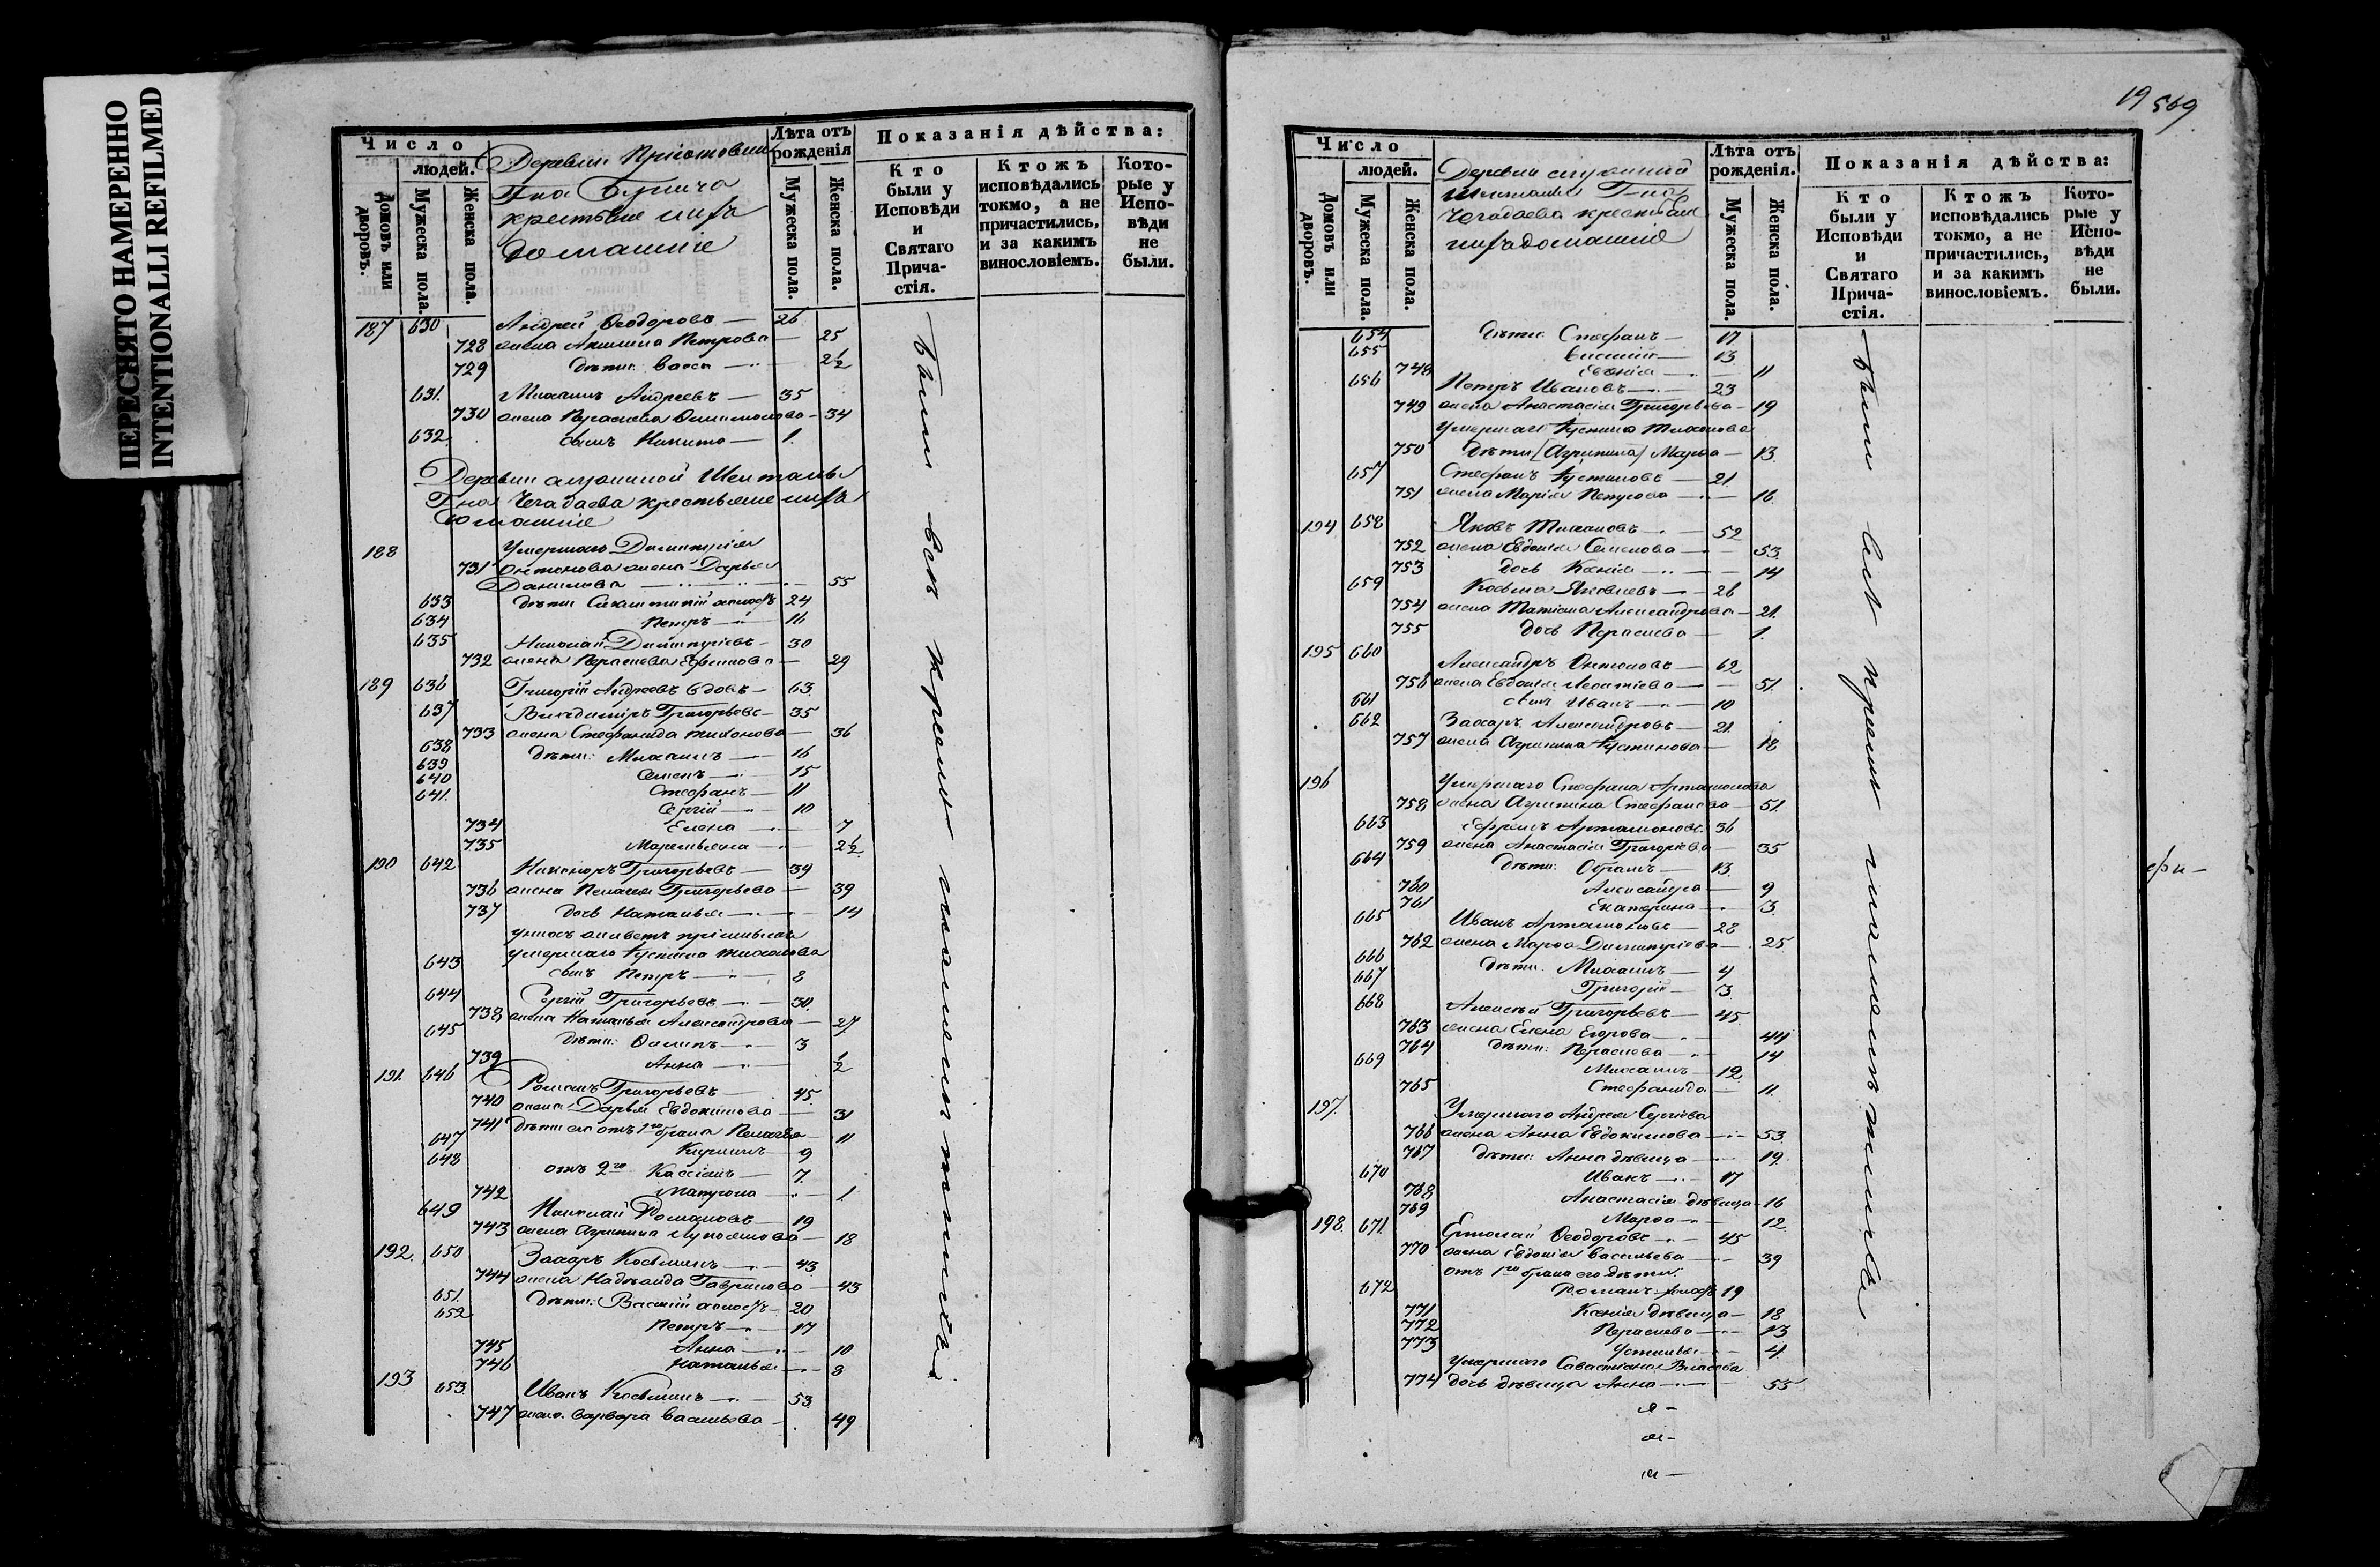 ПЕРЕСНЯТО НАМЕРЕННО
INTENTIONALLI REFILMED
Число
людей.
Домовъ или дворовъ.
Мужеска пола.
Женска пола.
Деревни
Г-на
крестьяне
домашніе
Лѣта отъ рожденія
Мужеска пола.
Женска пола.
Показанія дѣйства:
Кто были у Исповѣди и Святаго Прича-стія.
Ктожъ исповѣдались токмо, а не причастились, и за какимъ винословіемъ.
Кото-рые у Испо-вѣди не были.
187 630 Андрей Ѳеодоровъ — 26
728 жена Акилина Петрова — 25
729 дѣти: Васса — 2½
631. Михаилъ Андреевъ — 35
730 жена Параскева — 34
632. сынъ Никита — 1.
Деревни Шенталы
Г-на Чегадаева крестьяне
домашніе
188 Умершаго Димитрія
731 Антонова жена Дарья
Данилова — 55
633 дѣти холостъ 24
634 Петръ — 16
635 Николай Димитріевъ — 30
732 жена Параскева Ефимова — 29
189 636 Григорій Андреевъ вдовъ — 63.
637 Владиміръ Григорьевъ — 35
733 жена Стефанида Тихонова — 36
638 дѣти: Михаилъ — 16
639 Семенъ — 15
640 Стефанъ — 11
641. Сергій — 10
734 Елена — 7
735 Маремьяна — 2½
190 642 Никаноръ Григорьевъ — 39
736 жена Пелагея Григорьева — 39
737 дочь Наталья — 14
у нихъ живетъ
умершаго Іустина
643 сынъ Петръ — 8
644 Сергій Григорьевъ — 30.
738 жена Наталья Александрова — 27
645 дѣти: — 3
739 Анна — ½
191. 646 Романъ Григорьевъ — 45.
740 жена Дарья Евдокимова — 31
741 дѣти его отъ 1го брака Пелагея — 11
647 Кириллъ — 9
648 отъ 2го Кассіанъ — 7.
742 Матрона — 1.
649 Николай Романовъ — 19
743 жена Агрипина — 18
192. 650 Захаръ Косьминъ — 43
744 жена Надежда Гаврилова — 43
651. дѣти: Василій холостъ — 20
652 Петръ — 17
745 Анна — 10
746 Наталья — 8
193 653. Иванъ Косьминъ — 53.
747 жена Варвара Васильева — 49
Были
19 569
Число
людей.
Домовъ или дворовъ.
Мужеска пола.
Женска пола.
Деревни
Шенталы Г-на
Чегадаева крестьяне
домашніе
Лѣта отъ рожденія.
Мужеска пола.
Женска пола.
Показанія дѣйства:
Кто были у Исповѣди и Святаго Прича-стія.
Ктожъ исповѣдались токмо, а не причастились, и за какимъ винословіемъ.
Кото-рые у Испо-вѣди не были.
654 дѣти: Стефанъ — 17
655 Василій — 13
748 — 11
656 Петръ Ивановъ — 23
749 жена Анастасія Григорьева — 19
умершаго Іустина
750 дѣти [Агрипина] Марѳа — 13.
657 Стефанъ Іустиновъ — 21
751 жена Марія Петрова — 16
194 658 Яковъ — 52
752 жена Евдокія Семенова — 53.
753 дочь Ксенія — 14
659 Косьма Яковлевъ — 26
754 жена Татіана Александрова — 21.
755 дочь Параскева — 1.
195 660 Александръ Антоновъ — 62
756 жена Евдокія Леонтіева — 51.
661 сынъ Иванъ — 10
662 Захаръ Александровъ — 21.
757 жена Агрипина Іустинова — 18
196 Умершаго Стефана Артамонова
758 жена Агрипина Стефанова — 51.
663 Ефремъ Артамоновъ 36
759 жена Анастасія Григорьева — 35
664 дѣти: — 13.
760 Александра — 9
761 Екатерина — 3.
665 Иванъ Артамоновъ — 28
762 жена Марѳа Димитріева — 25
666 дѣти. Михаилъ — 4
667 Григорій — 3
668 Алексѣй Григорьевъ — 45
763 жена Елена Егорова — 44
764 дѣти: Параскева — 14
669 Михаилъ — 12
765 Стефанида — 11.
197. Умершаго Андрея Сергіева
766 жена Анна Евдокимова — 53.
767 дѣти: Анна дѣвица — 19.
670 Иванъ — 17
768 Анастасія дѣвица — 16
769 Марѳа — 12.
198. 671. Ермолай Ѳеодоровъ — 45
770 жена Евдокія Васильева — 39
отъ 1го брака его дѣти:
672 Романъ холостъ 19
771 Ксенія дѣвица — 18
772 Параскева — 13
773 Устинья — 4.
умершаго Савастіана Власова
774 дочь дѣвица Анна — 55
Были